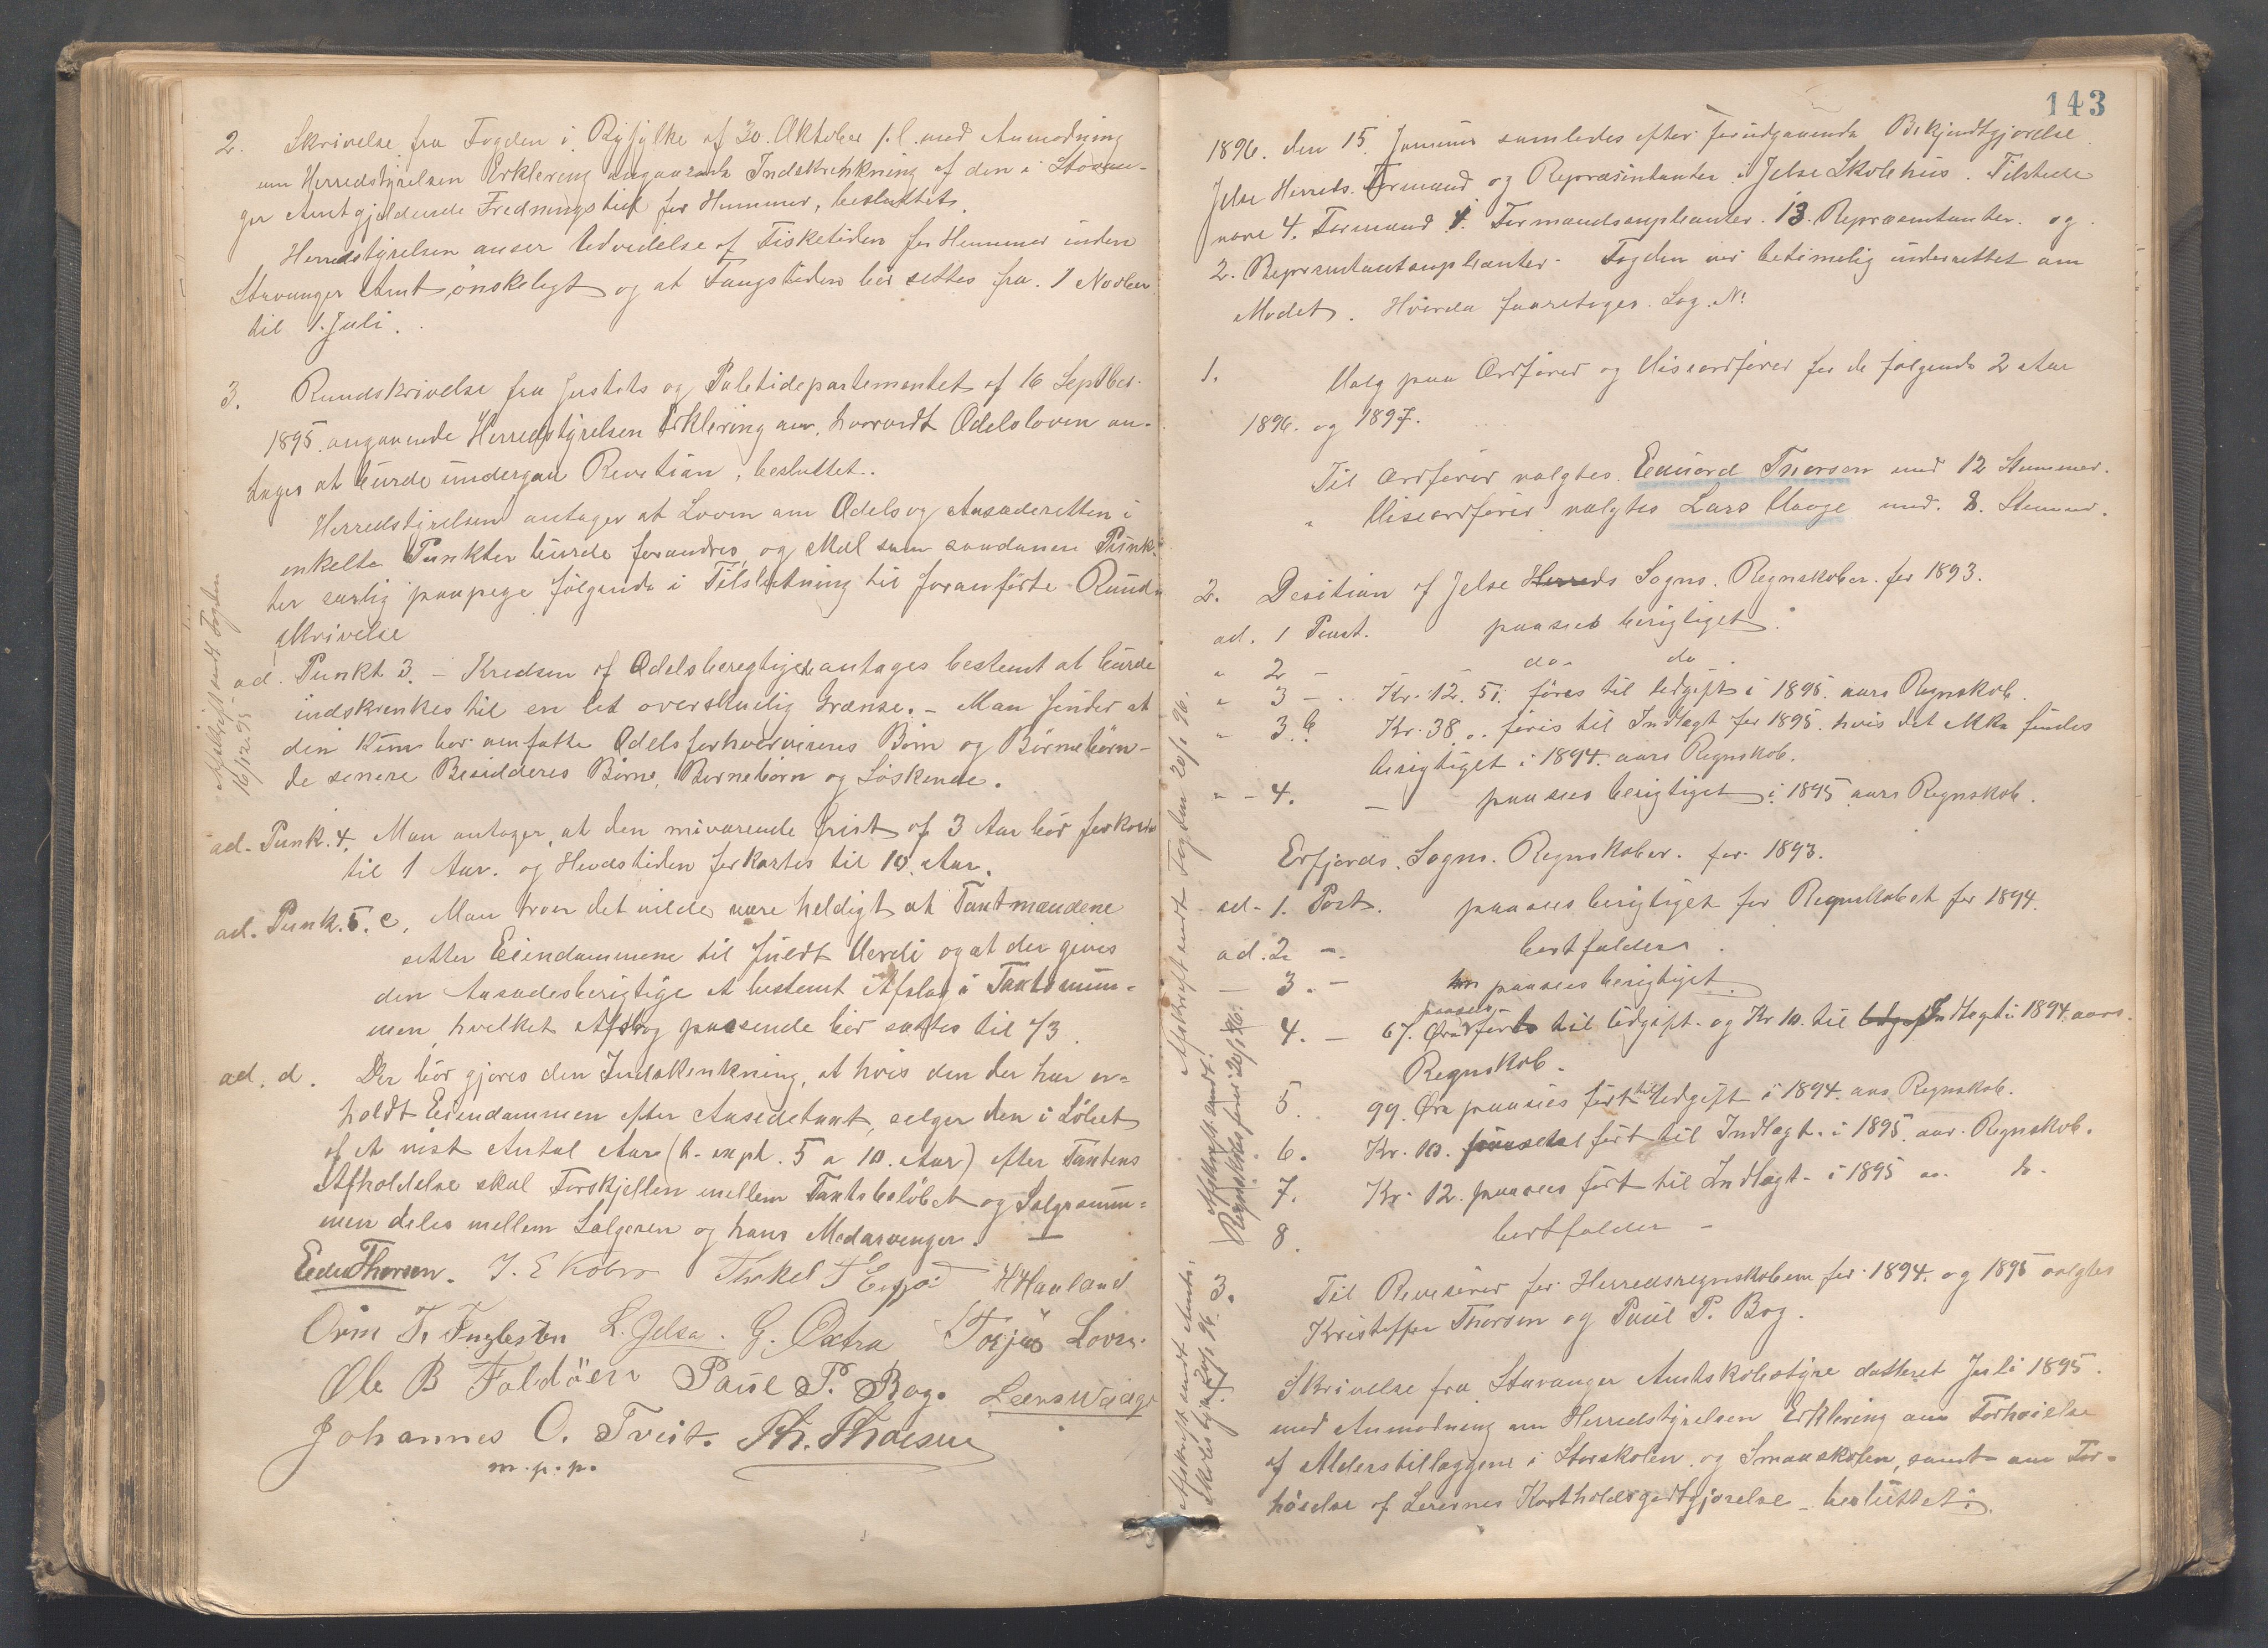 2. Skrivelse fra Fogden i Ryfylke af 30. Oktober f. l. med Anmodning
om Herredstyrelsen Erklering angaaende Indskrenkning af den i Stavan-
ger Amt gjeldende Fredningstid for Hummer, besluttet.
Herredstyrelsen anser Udvidelse af Fisketiden for Hummer inden
Stavanger Amt ønskeligt og at Fangstiden bør settes fra 1 Novber
til 1. Juli.
3. Rundskrivelse fra Justits og Politidepartementet af 16 Septber.
1895. angaaende Herredstyrelsen Erklering om, hvorvidt Odelsloven an-
tages at burde undergaa Revetian, besluttet.
Herredstyrelsen antager at Loven om Odels og Aasæderetten i
enkelte Punkter burde forandres, og skal som saadanne Punk-
ter særlig paapege følgende i Tilslutning til foranførte Rund-
skrivelse
ad. Punkt 3. - Kredsen af Odelsberegtigede antages bestemt at burde
indskrenkes til en let overskuelig Grænse. - Man finder at
den kun bør omfatte Odelserhververens Børn og Børnebørn -
de senere Besidderes Børn, Børnebørn og Søskende.
ad. Punk. 4. Man antager at den nuværende Frist af 3 Aar bør forkortes
til 1 Aar. og Hevdstiden forkortes til 10. Aar.
ad. Punk. 5. c. Man tror det vilde være heldigt at Taxtmændene
sætter Eiendommene til fuldt Verdi og at der gives
den Aasædesberigtige et bestemt Afslag i Taxtsum-
men, hvelket Afslag passende bør sættes til 1/3
ad. d. Der bør gjøres den Indskrenkning, at hvis den der har er-
holdt Eiendommen efter Aasædetaxt, selger den i Løbet
af et vist Antal Aar (t. expl. 5 a 10. Aar) efter Taxtens
Afholdelse skal Forskjellen mellem Taxtsbeløbet og Salgssum-
men deles mellem Selgeren og hans Medarvenger.
Afskrift sendt Fogden
16/12 95
Edu Thorsen. J. E Kobro Thorkel T Eigja H Hauland
Orm T. Fuglesten L. Jelsa. G. Østrø Torjus Lovra.
Ole B Foldöen Paul P. Bog. Lars Waage
Johannes O. Tveit. Th. Thorsen
m. p. p.
143
1896. den 15. Januar samledes efter forudgaaende Bekjendtgjørelse
Jelse Herreds Formænd og Repræsentanter i Jelse Skolehus. Tilstede
vare 4. Formænd 1. Formandssupleanter. 13. Repræsentanter. og
2. Repræsentantsupleanter. Fogden var betimelig underrettet om
Mødet. Hvorda foretages. Sag. N:
1. Valg paa Ordfører og Viseordfører for de følgende 2 Aar
1896. og 1897.
Til Ordfører valgtes. Eduard Thorsen med 12 Stemmer.
" Viseordfører valgtes Lars Vaage med. 8. Stemmer.
2. Desition af Jelse Herreds Sogns. Regnskober. for 1893.
ad. 1 Post. paasees berigtiget.
" 2 - do. do.
" 3 - Kr. 12. 51. føres til Udgift i 1895. aars Regnskob.
" 3.b Kr. 38 „. føres til Indtægt for 1895. hvis det ikke findes
berigtiget i 1894. aars Regnskob.
" - 4. - paasees berigtiget i 1895 aars Regnskob.
Erfjords. Sogns. Regnskober. for. 1893.
ad. 1. Post. paasees berigtiget for Regnskobet for 1894.
ad. 2 - bortfalder.
- 3. - paasees berigtiget.
4. - 67. Øre paasees ført til Udgift. og Kr 10. til Udgift Indtægt i 1894. aars.
Regnskob.
5. 99. Øre paasees ført til Udgift i 1894. aars Regnskob.
6. Kr. 10. paasees ført til Indtægt. i 1895. aar. Regnskob.
7. Kr. 12. paasees ført til Indtægt. i 1895 a. do.
8. bortfalder -
3. Til Revisører for Herredsregnskobene for 1894. og 1895 valgtes
Kristoffer Thorsen og Paul P. Bog.
Skrivelse fra Stavanger Amtskolestyre datteret Juli 1895.
med Anmodning om Herredstyrelsen Erklering om Forhøielse
af Alderstillæggene i Storskolen og Smaaskolen, samt om For-
høielse af Lerernes Kostholdsgodtgjørelse - besluttet:
Afskrift sendt Fogden 20/1 96.
Afskrift sendt.
Regnskobsfører 20/1 96.
Afskrift sendt Amts.
Skolestyret 20/1 96.